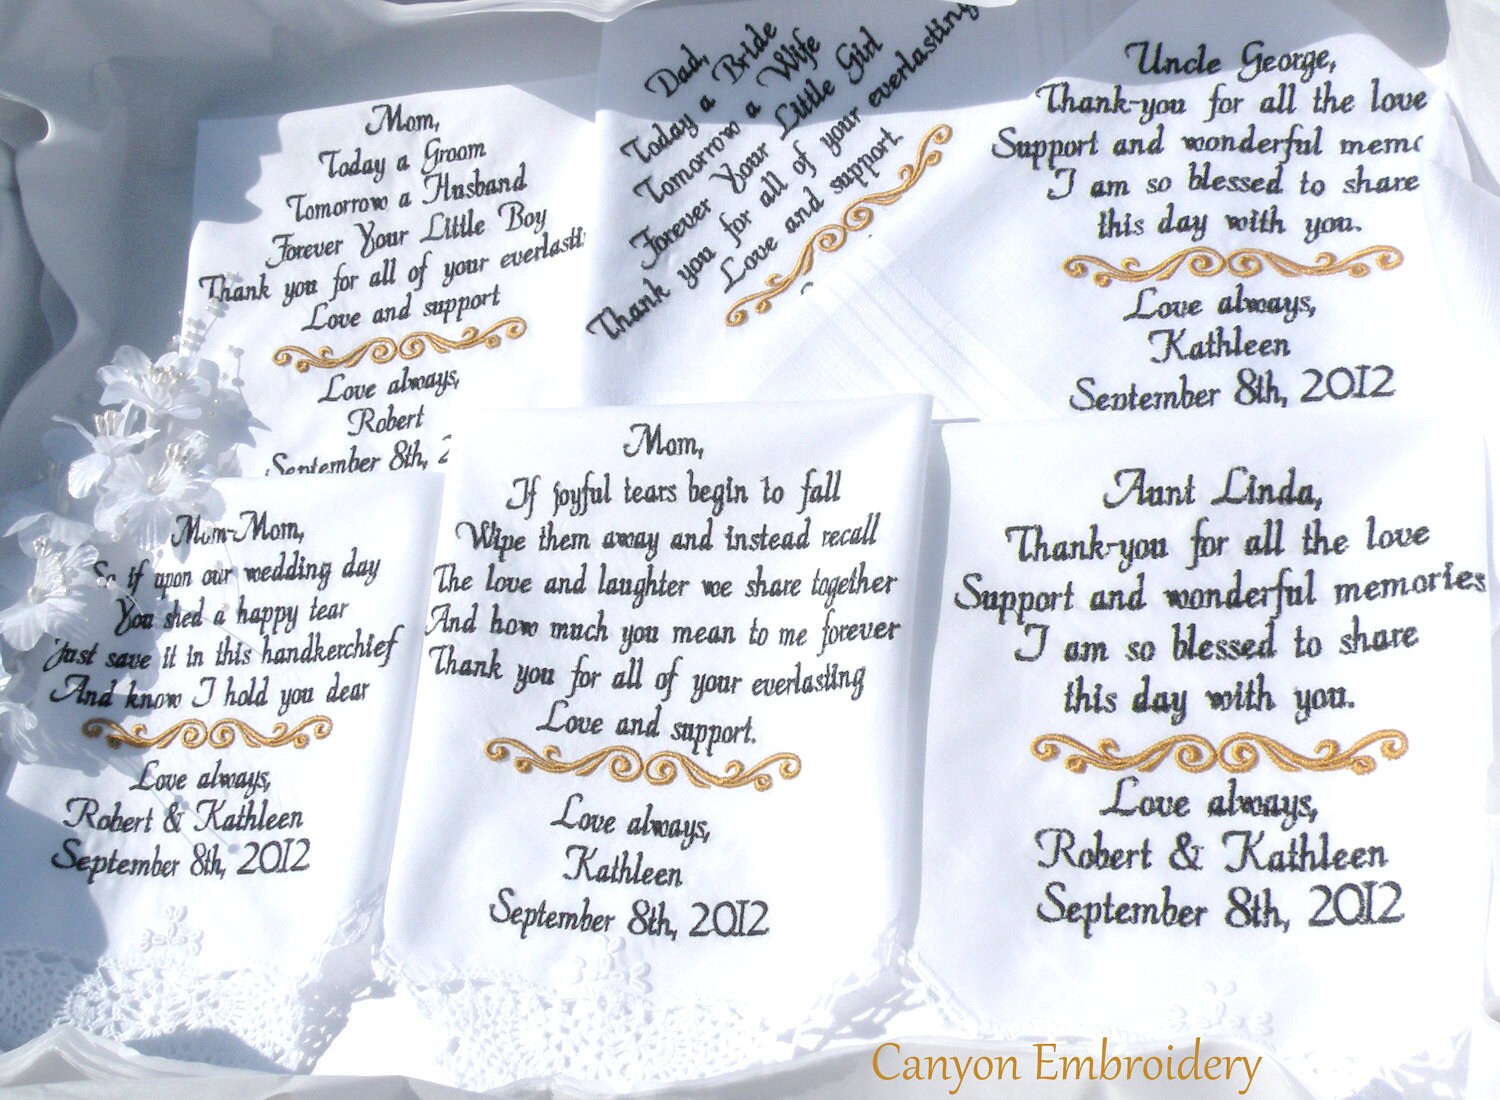 Mom,
Today a Groom
Tomorrow a Husband
Forever Your Little Boy
Thank you for all of your
Love and support
Love always,
Robert
September 8th,
Dad,
Today a Bride
Tomorrow a Wife
Forever Your Little Girl
Thank you for all of your everlasting
Love and support.
Uncle George,
Thank-you for all the love
Support and wonderful
I am so blessed to share
this day with you.
Love always,
Kathleen
September 8th, 2012
Mom-Mom,
So if upon our wedding day
You shed a happy tear
Just save it in this handkerchief
And know I hold you dear
Love always,
Robert & Kathleen
September 8th, 2012
Mom,
If joyful tears begin to fall
Wipe them away and instead recall
The love and laughter we share together
And how much you mean to me forever
Thank you for all of your everlasting
Love and support.
Love always,
Kathleen
September 8th, 2012
Aunt Linda,
Thank-you for all the love
Support and wonderful memories
I am so blessed to share
this day with you.
Love always,
Robert & Kathleen
September 8th, 2012
Canyon Embroidery